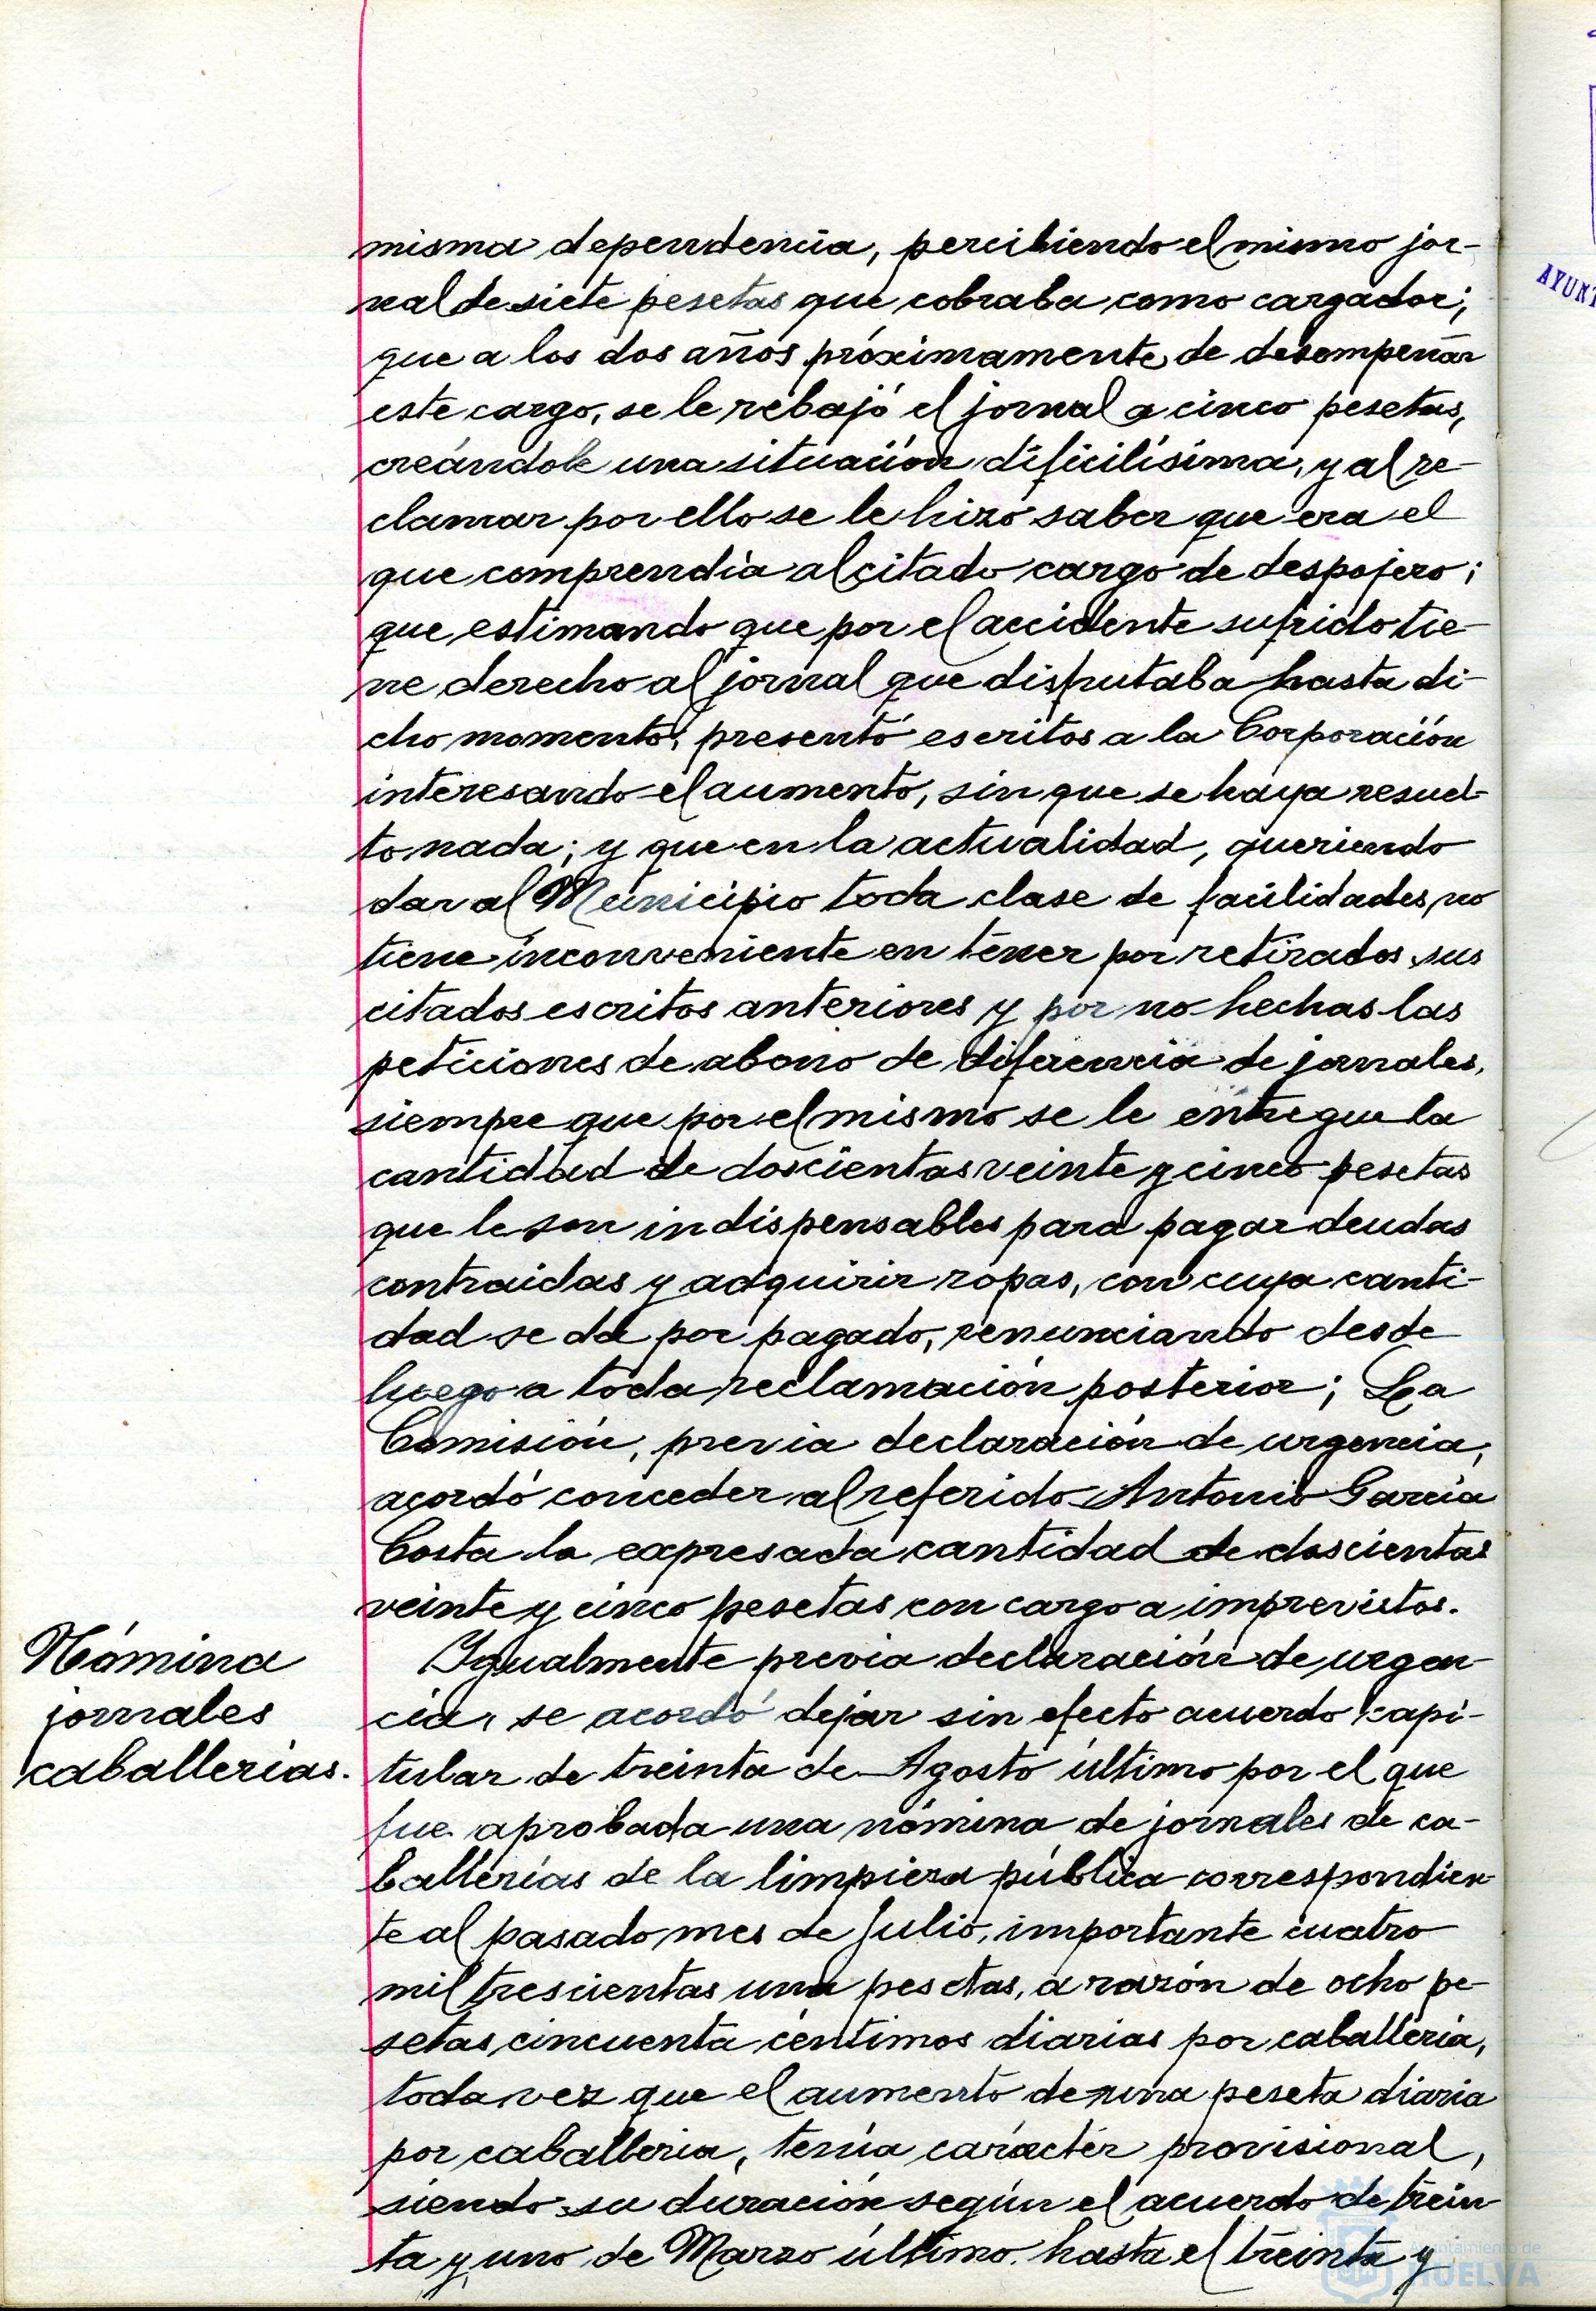 misma dependencia, percibiendo el mismo jor-
nal de siete pesetas que cobraba como cargador;
que a los dos años próximamente de desempeñar
este cargo, se le rebajó el jornal a cinco pesetas,
creándole una situación dificilísima, y al re-
clamar por ello se le hizo saber que era el
que comprendía al citado cargo de despojero;
que estimando que por el accidente sufrido tie-
ne derecho al jornal que disfrutaba hasta di-
cho momento, presentó escritos a la Corporación
interesando el aumento, sin que se haya resuel-
to nada; y que en la actualidad, queriendo
dar al Municipio toda clase de facilidades, no
tiene inconveniente en tener por retirados sus
citados escritos anteriores y por no hechas las
peticiones de abono de diferencia de jornales,
siempre que por el mismo se le entregue la
cantidad de doscientas veinte y cinco pesetas
que le son indispensables para pagar deudas
contraidas y adquirir ropas, con cuya canti-
dad se da por pagado, renunciando desde
luego a toda reclamación posterior; La
Comisión, previa declaración de urgencia,
acordó conceder al referido Antonio García
Costa la expresada cantidad de doscientas
veinte y cinco pesetas con cargo a imprevistos.
Nómina
jornales
caballerías.
Igualmente previa declaración de urgen-
cia, se acordó dejar sin efecto acuerdo capi-
tular de treinta de Agosto último por el que
fue aprobada una nómina de jornales de ca-
ballerías de la limpieza pública correspondien-
te al pasado mes de Julio, importante cuatro
mil trescientas una pesetas, a razón de ocho pe-
setas cincuenta céntimos diarias por caballería,
toda vez que el aumento de una peseta diaria
por caballería, tenía carácter provisional,
siendo su duración según el acuerdo de trein-
ta y uno de Marzo último hasta el treinta y
AYUNT
Ayuntamiento de
HUELVA